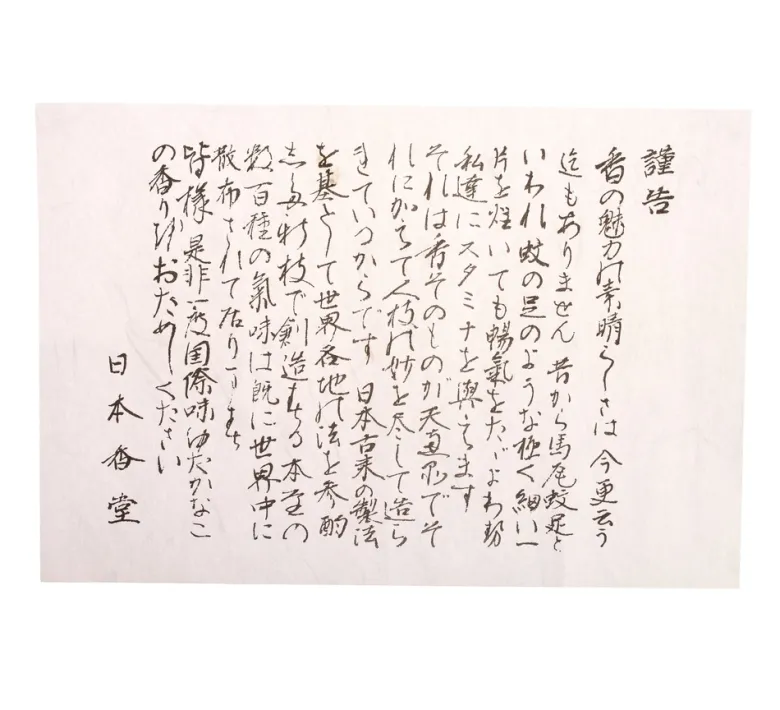 謹告
香の魅力の素晴らしさは今更云う
迄もありません 昔から馬尾蚊足と
いわれ蚊の足のような極く細い一
片を炷いても暢氣をたゞよわ勢
私達にスタミナを與えます
それは香そのものが天与品でそ
れに加えて人技の妙を尽して造ら
れているからです 日本古来の製法
を基として世界各地の法を参酌
し新技で創造する本堂の
数百種の氣味は既に世界中に
散布されて居ります
皆様 是非一度国際味ゆたかなこ
の香りをおためしください
日本香堂